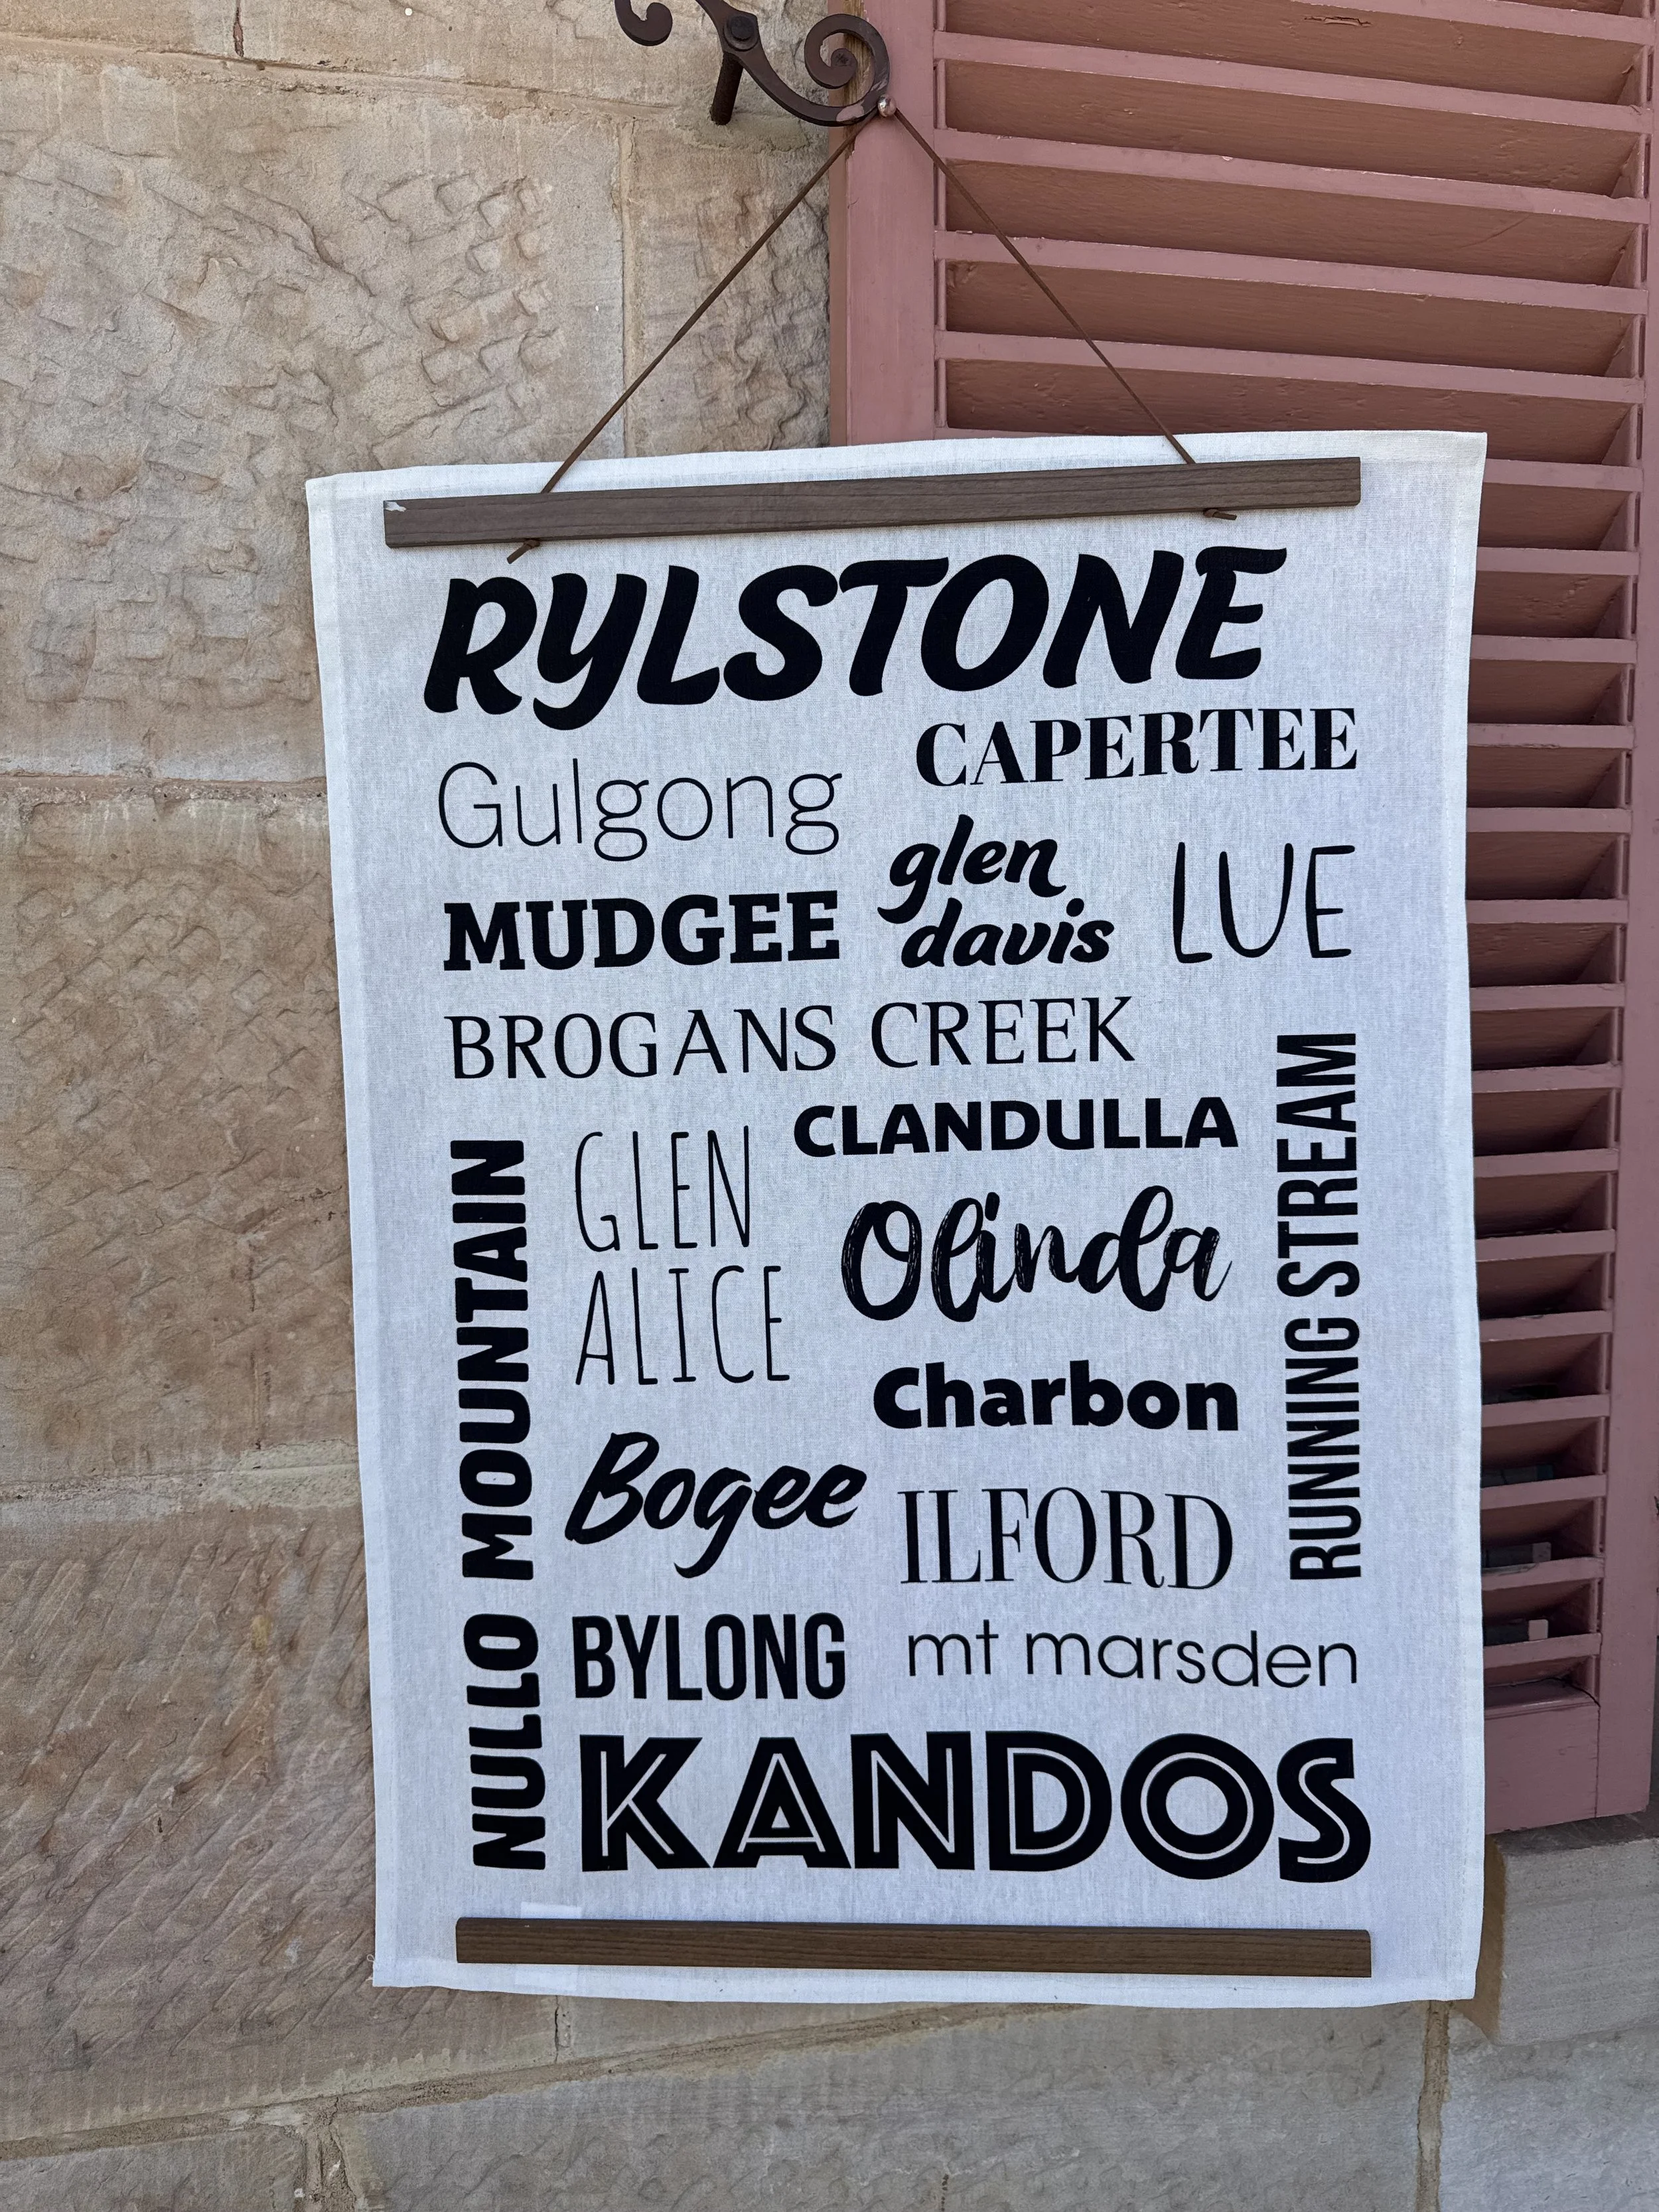 RYLSTONE
CAPERTEE
Gulgong
glen
davis
LUE
MUDGEE
BROGANS CREEK
CLANDULLA
RUNNING STREAM
NULLO MOUNTAIN
GLEN
ALICE
Olinda
Charbon
Bogee
ILFORD
BYLONG
mt marsden
KANDOS